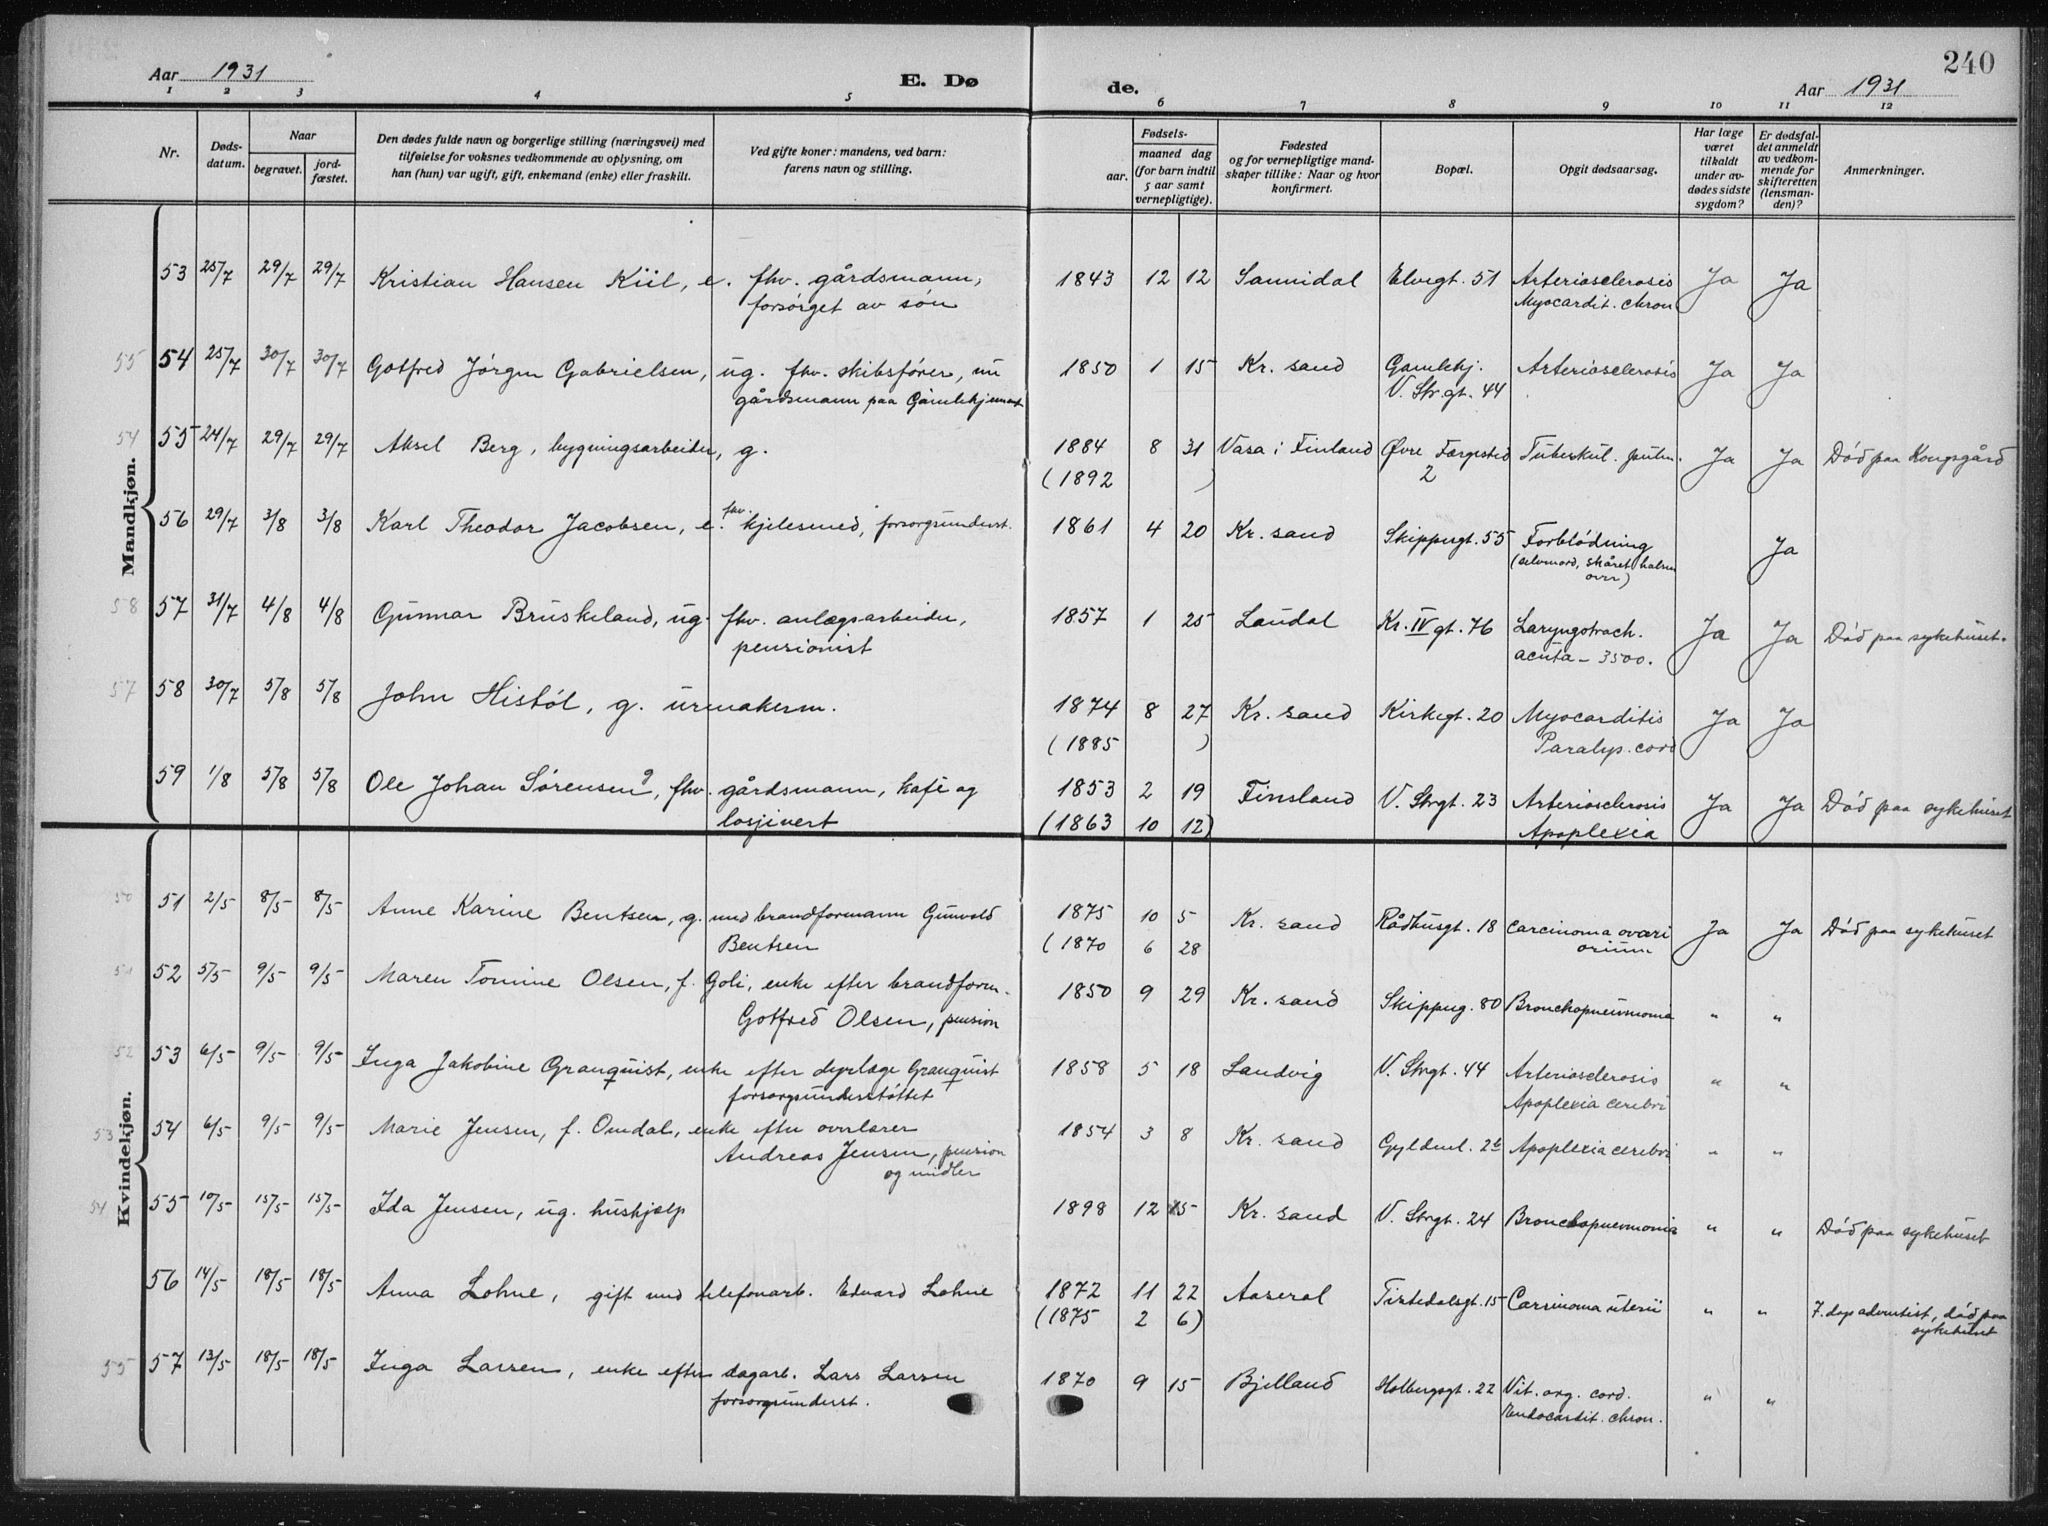 240
Aar 1931 E. Dø de. Aar 1931
1 2 3 4 5 6 7 8 9 10 11 12
Nr.
Døds-
datum.
Naar
begravet.
jord-
fæstet.
Den dødes fulde navn og borgerlige stilling (næringsvei) med
tilføielse for voksnes vedkommende av oplysning, om
han (hun) var ugift, gift, enkemand (enke) eller fraskilt.
Ved gifte koner: mandens, ved barn:
farens navn og stilling.
Fødsels-
aar.
maaned dag
(for barn indtil
5 aar samt
vernepligtige).
Fødested
og for vernepligtige mand-
skaper tillike: Naar og hvor
konfirmert.
Bopæl.
Opgit dødsaarsag.
Har læge
været
tilkaldt
under av-
dødes sidste
sygdom?
Er dødsfal-
det anmeldt
av vedkom-
mende for
skifteretten
(lensman-
den)?
Anmerkninger.
Mandkjøn.
53 25/7 29/7 29/7 Kristian Hansen Kiil, e. fhv. gårdsmann, 1843 12 12 Sannidal Elvegt. 51 Arteriosclerosis Ja Ja
forsørget av søn Myocardit. chron
55 54 25/7 30/7 30/7 Gotfred Jørgen Gabrielsen, ug. fhv. skibsfører, nu 1850 1 15 Kr. sand Gamlekj. Arteriosclerosis Ja Ja
gårdsmann paa V. Str.gt. 44
54 55 24/7 29/7 29/7 Aksel Berg, bygningsarbeider, g. 1884 8 31 Vasa i Finland Øvre Færgested Tuberkul. pulm. Ja Ja Død paa Kongsgård
(1892 ) 2
56 29/7 3/8 3/8 Karl Theodor Jacobsen, e. fhv. kjelesmed, forsorgsunderst. 1861 4 20 Kr. sand Skippergt. 55 Forblødning Ja
(selvmord, skåret halsen
over)
58 57 31/7 4/8 4/8 Gunnar Bruskeland, ug. fhv. anlægsarbeider, 1857 1 25 Laudal Kr. IV gt. 76 Laryngotrach. Ja Ja Død paa sykehuset.
pensionist acuta - 3500.
57 58 30/7 5/8 5/8 John Histøl, g. urmakerm. 1874 8 27 Kr. sand Kirkegt. 20 Myocarditis Ja Ja
(1885 ) Paralys. cord
59 1/8 5/8 5/8 Ole Johan Sørensen, g, fhv. gårdsmann, kafé og 1853 2 19 Finsland V. Strgt. 23 Arteriosclerosis Ja Ja Død paa sykehuset
losjivert (1863 10 12) Apoplexia
Kvindekjøn.
50 51 2/5 8/5 8/5 Anne Karine Bentsen, g. med brandformann Gunvald 1875 10 5 Kr. sand Rådhusgt. 18 Carcinoma ovari Ja Ja Død paa sykehuset
Bentsen (1870 6 28 orium
51 52 5/5 9/5 9/5 Maren Tomine Olsen, f. Goli, enke efter brandform. 1850 9 29 Kr. sand Skipperg. 80 Bronchopneumonia " "
Gotfred Olsen, pension
52 53 6/5 9/5 9/5 Inga Jakobine Granquist, enke efter dyrlæge Granquist 1858 5 18 Landvig V. Strgt. 44 Arteriosclerosis " "
forsorgsunderstøttet Apoplexia cerebri
53 54 6/5 9/5 9/5 Marie Jensen, f. Omdal, enke efter overlærer 1854 3 8 Kr. sand Gyldenl. 2b Apoplexia cerebri " "
Andreas Jensen, pension
og midler
54 55 10/5 15/5 15/5 Ida Jensen, ug. hushjælp 1898 12 15 Kr. sand V. Strgt. 24 Bronchopneumonia " " Død paa sykehuset
56 14/5 18/5 18/5 Anna Lohne, gift med telefonarb. Edvard Lohne 1872 11 22 Aaseral Tistedalsgt. 15 Carsinoma uterii " " 7. dags adventist, død paa
(1875 2 6) sykehuset
55 57 13/5 18/5 18/5 Inga Larsen, enke efter dagarb. Lars Larsen 1870 9 15 Bjelland Holbergsgt. 22 Vit. org. cord. " "
forsorgsunderst. Endocardit. chron.